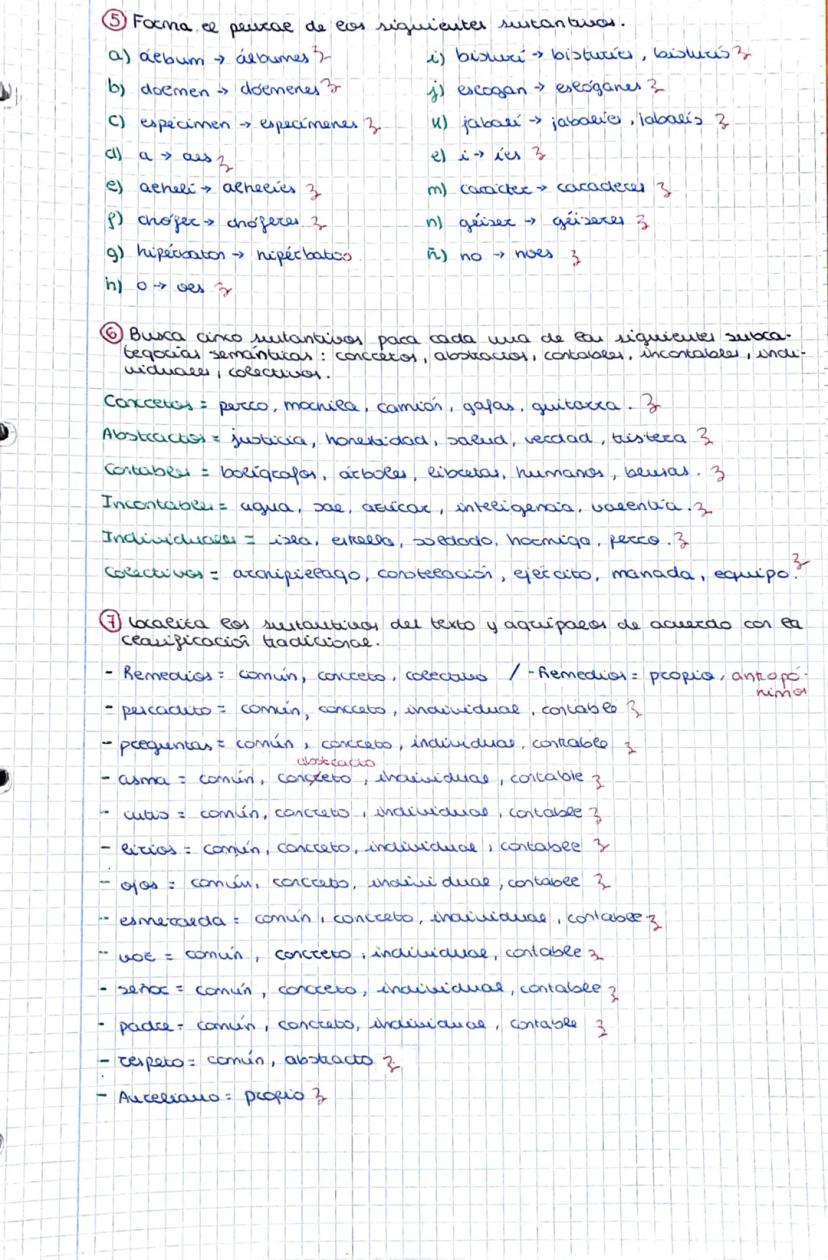 ⑤ Forma el plural de los siguientes sustantivos.
a) álbum → álbumes
b) dolmen → dólmenes
c) espécimen → especímenes
d) a → aes
e) alhelí → alhelíes
f) chófer → chóferes
g) hipérbaton → hipérbatos
h) o → oes
i) bisturí → bisturíes, bisturís
j) eslogan → eslóganes
k) jabalí → jabalíes, jabalís
l) i → íes
m) carácter → caracteres
n) géiser → géiseres
ñ) no → noes
⑥ Busca cinco sustantivos para cada una de las siguientes subca-
tegorías semánticas: concretos, abstractos, contables, incontables, indi-
viduales, colectivos.
Concretos = perro, mochila, camión, gafas, guitarra.
Abstractos = justicia, honestidad, salud, verdad, tristeza
Contables = bolígrafos, árboles, libretas, humanos,
Incontables = agua, sal, azúcar, inteligencia, valentía.
Individuales = isla, estrella, soldado, hormiga, perro.
Colectivos = archipiélago, constelación, ejército, manada, equipo.
⑦ Localiza los sustantivos del texto y agrúpalos de acuerdo con la
clasificación tradicional.
- Remedios = común, concreto, colectivo / - Remedios = propio, antropó-
nimos
- pescadito = común, concreto, individual, contable
- preguntas = común, concreto, individual, contable
abstracto
- asma = común, concreto, individual, contable
- cutis = común, concreto, individual, contable
- lirios = común, concreto, individual, contable
- ojos = común, concreto, individual, contable
- esmeralda = común, concreto, individual, contable
- voz = común, concreto, individual, contable
- señor = común, concreto, individual, contable
- padre = común, concreto, individual, contable
- respeto = común, abstracto
- Aureliano = propio